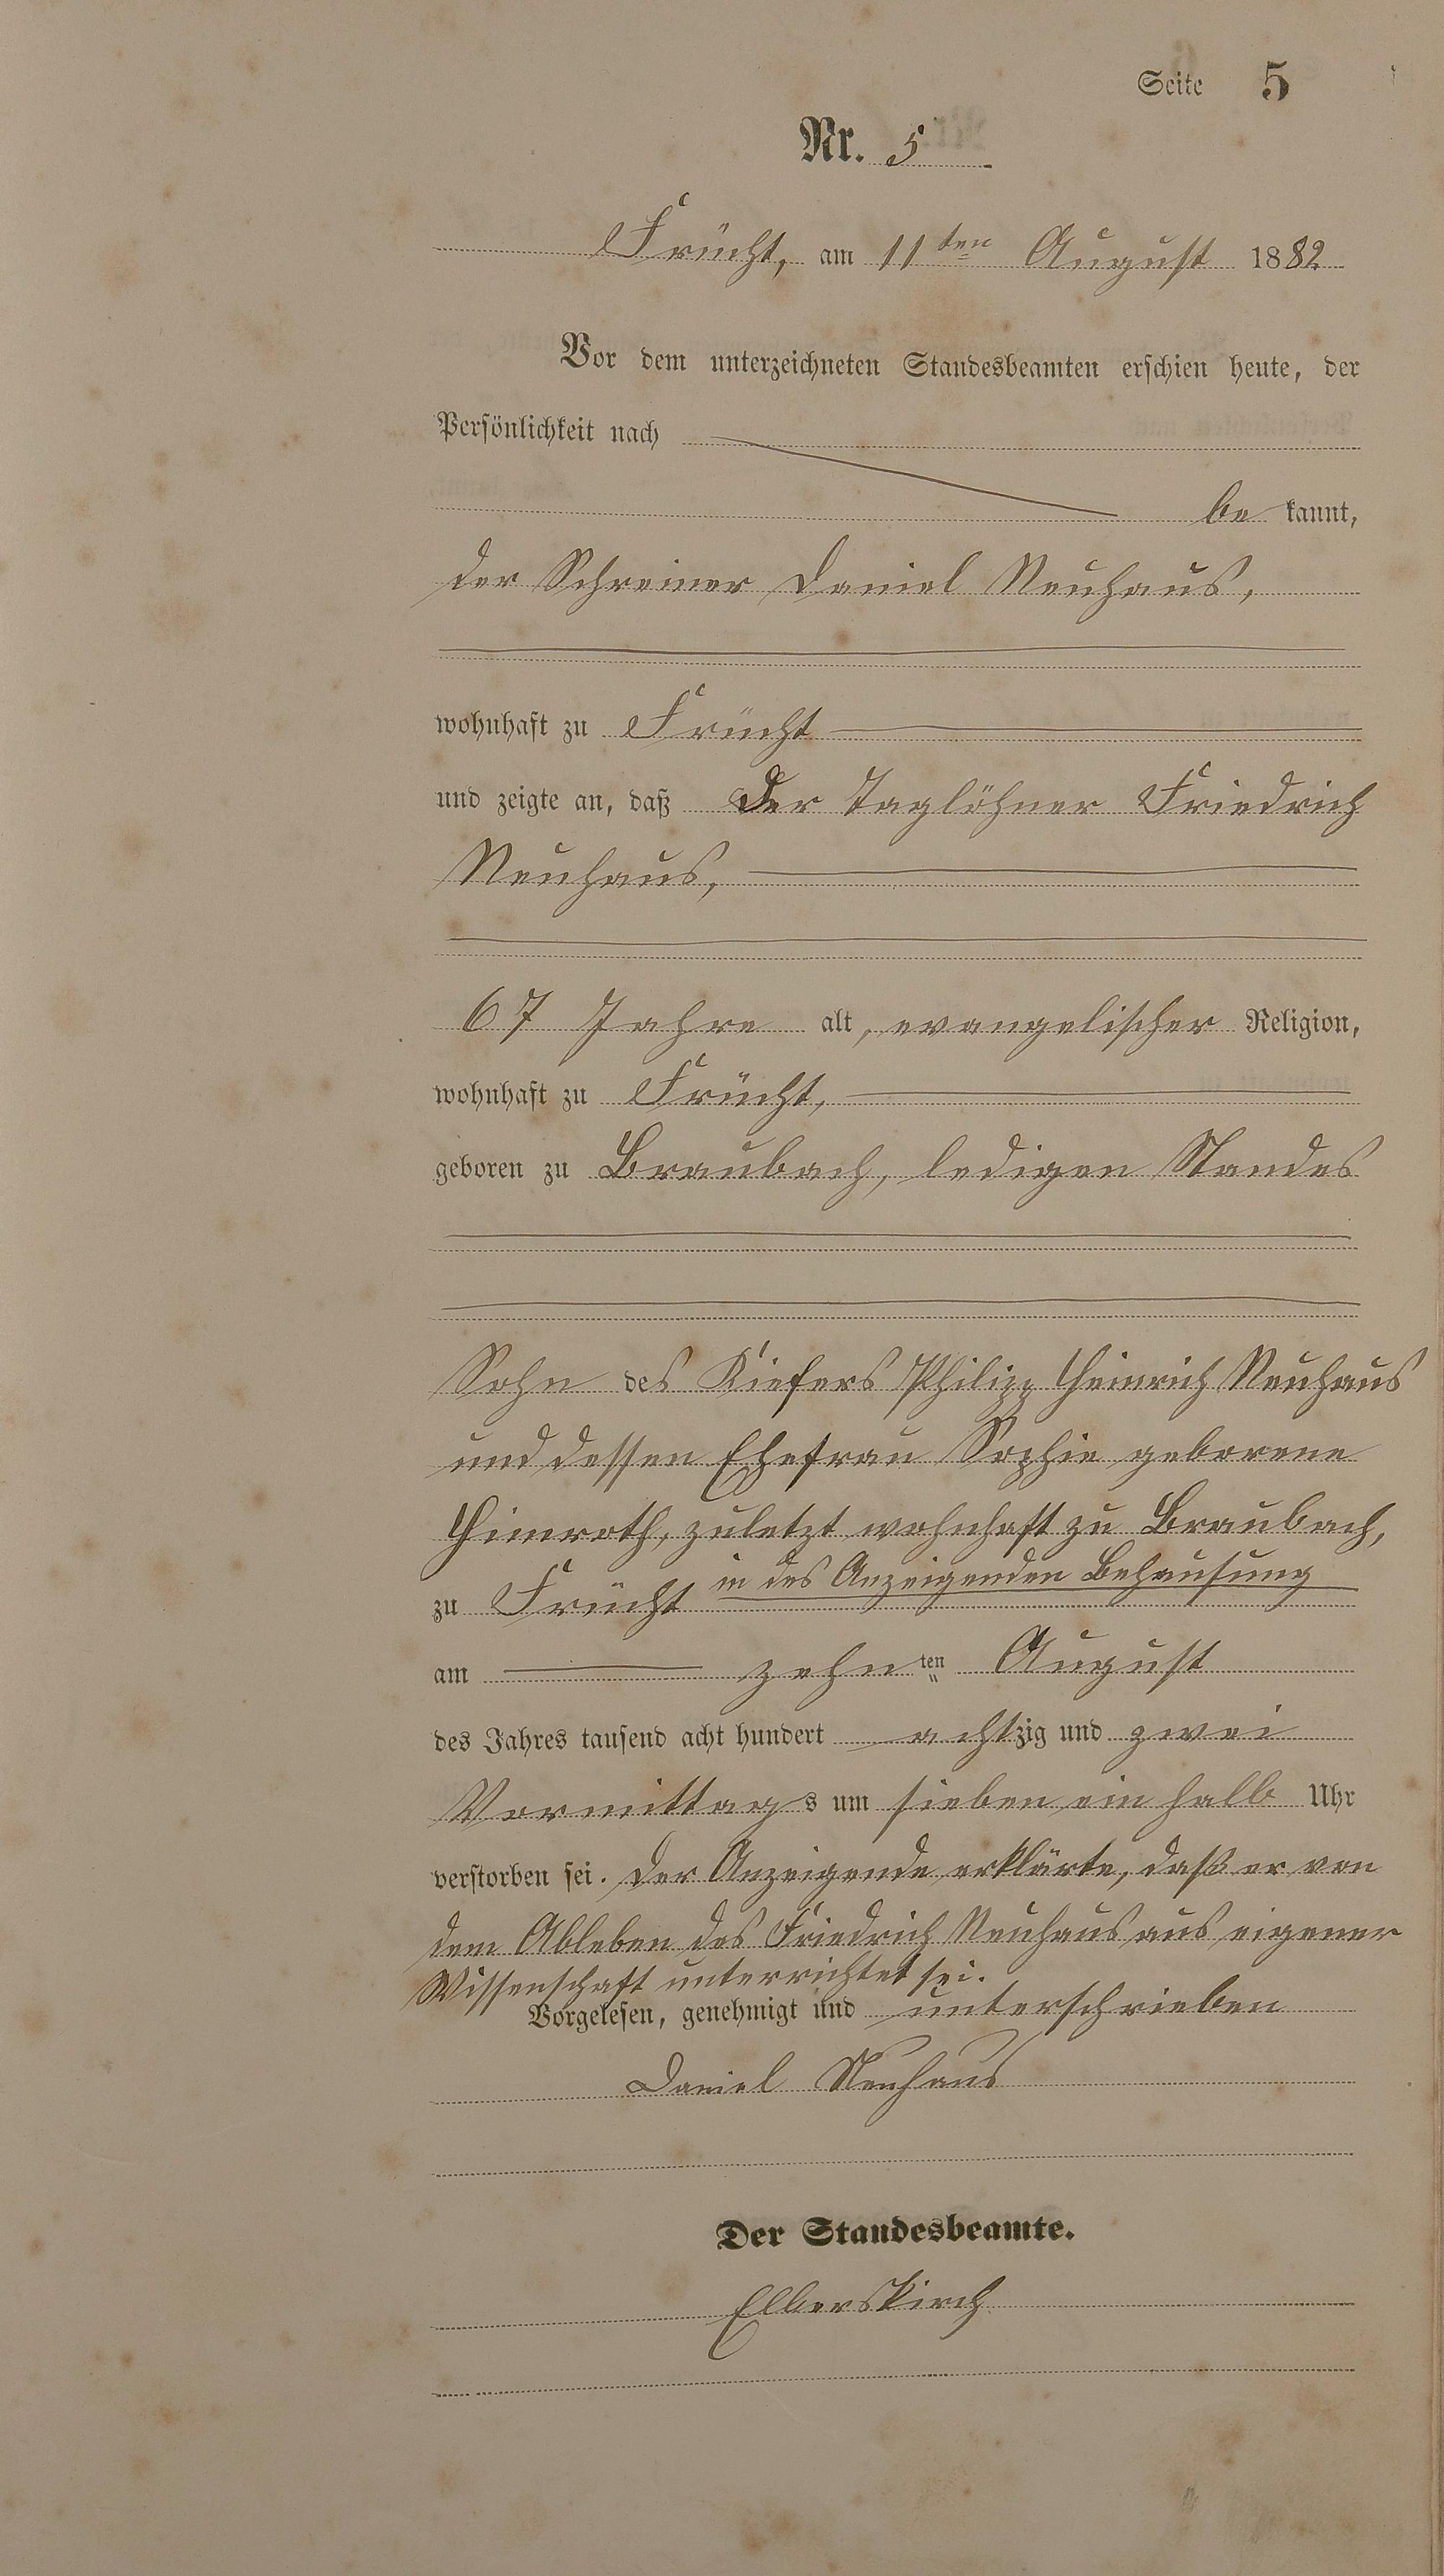 Seite 5
Nr. 5
Frücht, am 11ten August 1882
Vor dem unterzeichneten Standesbeamten erschien heute, der
Persönlichkeit nach
be kannt,
der Schreiner Daniel Neuhaus,
wohnhaft zu Frücht
und zeigte an, daß Der Taglöhner Friedrich
Neuhaus,
67 Jahre alt, evangelischer Religion,
wohnhaft zu Frücht,
geboren zu Braubach, ledigen Standes
Sohn des Kiefers Philipp Heinrich Neuhaus
und dessen Ehefrau Sophie geborene
Himroth, zuletzt wohnhaft zu Braubach,
zu Frücht in des Anzeigenden Behausung
am zehnten August
des Jahres tausend acht hundert achtzig und zwei
Vormittags um sieben ein halb Uhr
verstorben sei. Der Anzeigende erklärte, daß er von
dem Ableben des Friedrich Neuhaus aus eigener
Wissenschaft unterrichtet sei.
Vorgelesen, genehmigt und unterschrieben
Daniel Neuhaus
Der Standesbeamte.
Elberskirch